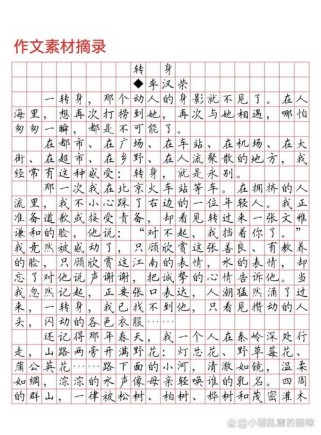 作文素材摘录
转 身
◆李汉荣
一转身，那个动人的身影就不见了。在人
海里，想再次打捞到她，再次与她相遇，哪怕
匆匆一瞬，都是不可能了。
在都市、在广场、在车站、在机场、在大
街、在超市、在乡野、在人流聚散的地方，我
经常有这种感受：转身，就是永别。
那一次我在北京火车站等车。在拥挤的人
流里，我不小心踩了右边的一位年轻人。我正
准备道歉或接受责备，却看见转过来一张文雅
谦和的脸，他说：“对不起，我挡着你了。”
我竟然被感动了，只顾欣赏这张善良、有教养
的脸，只顾欣赏这江南的表情，水的表情，却
忘了对他说声谢谢，把诚挚的心情告诉他。当
我忽然记起，正要张口表达，人潮猛然涌了过
来，一转身，我已找不到他，只看见攒动的人
头，闪动的各色衣服……
记得那年春天，我一个人在秦岭深处行
走，山路两旁开满野花：灯芯花、野草莓花、
蒲公英花……路下面的小河，清澈如镜，温柔
如绸，淙淙的水声像母亲轻唤谁的乳名。四周
的群山，一律被松树、柏树、桦树和茂密灌木